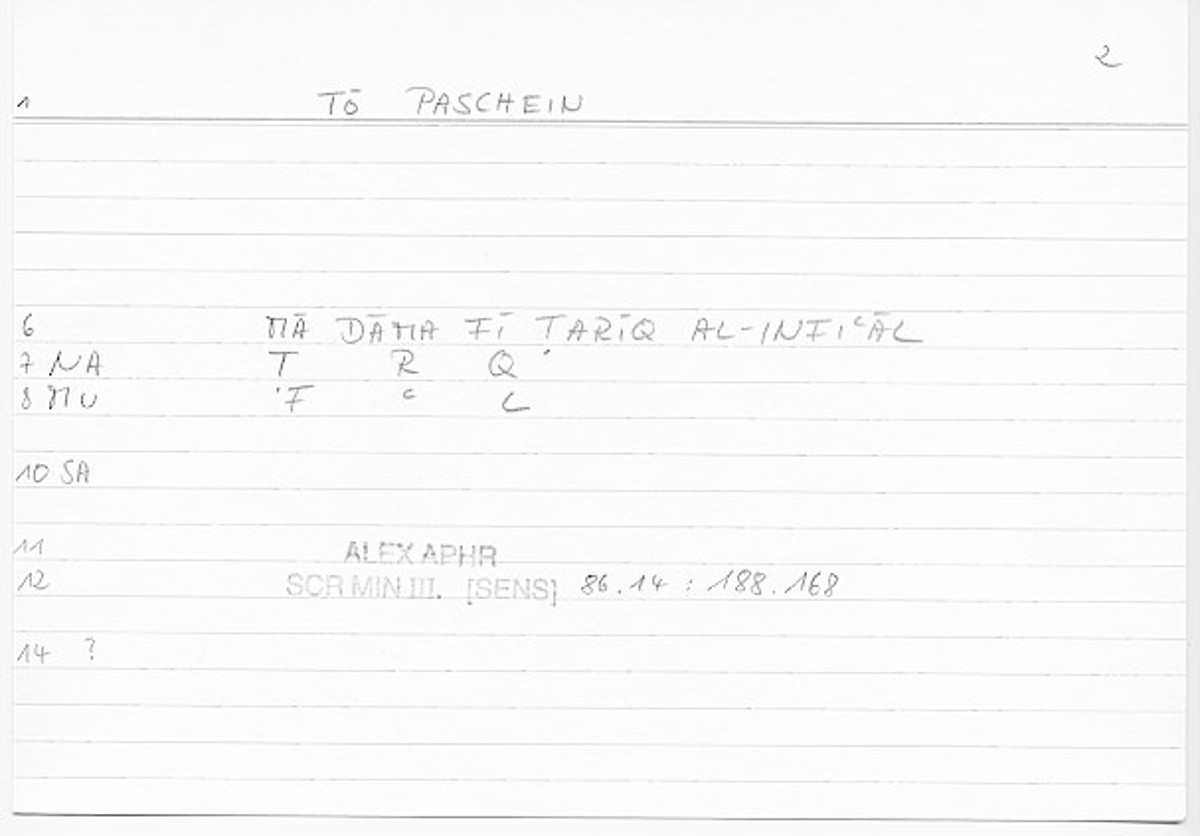 2
1 TŌ PASCHEIN
6 MĀ DĀMA FĪ ṬARĪQ AL-INFIʿĀL
7 NA T R Q
8 MU ʾF ʿ L
10 SA
11 ALEX APHR
12 SCR MIN III. [SENS] 86.14 : 188.168
14 ?